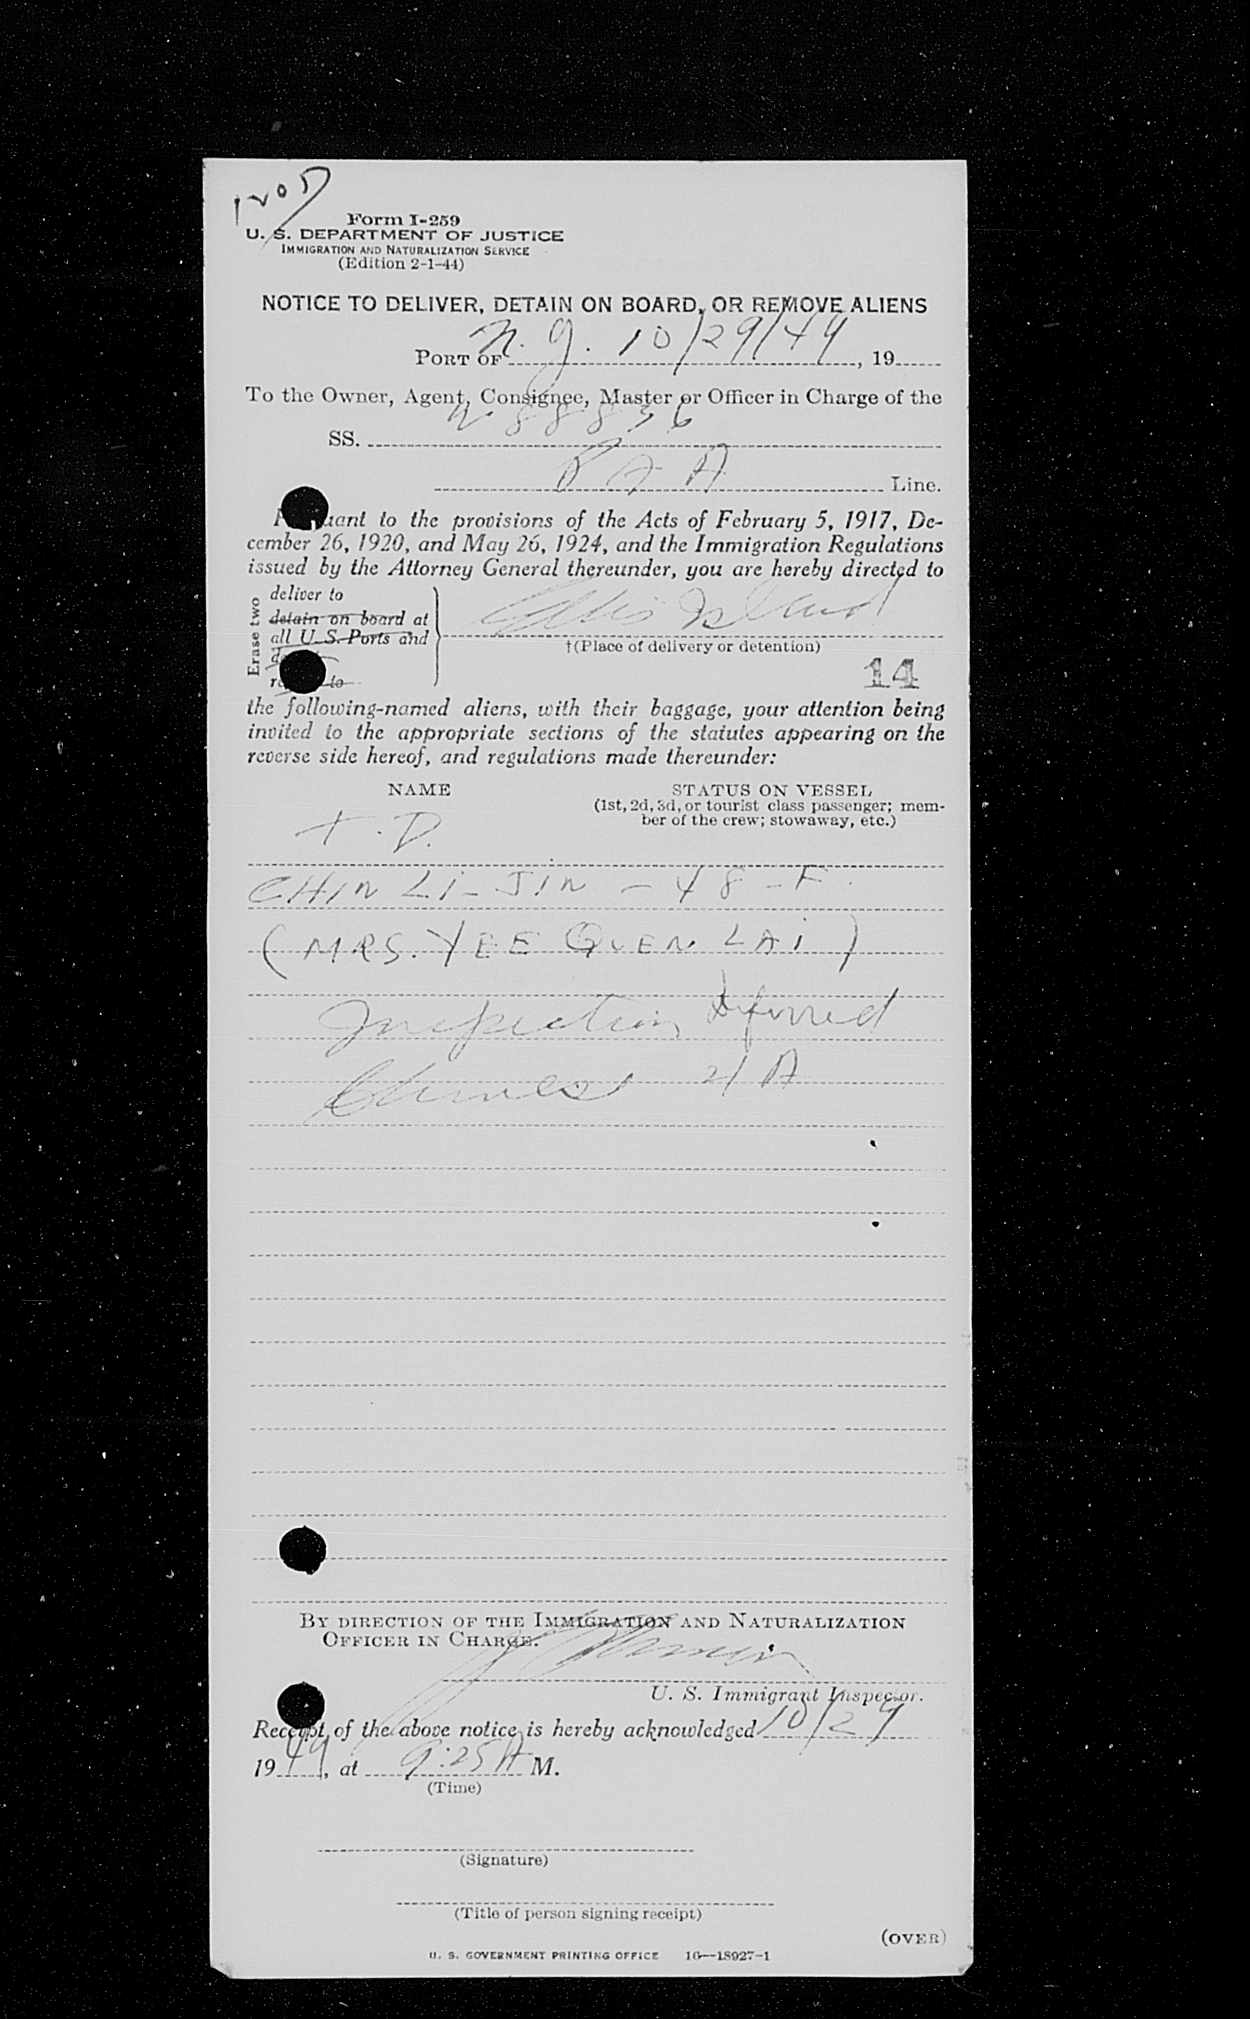 Form I-259
U. S. DEPARTMENT OF JUSTICE
IMMIGRATION AND NATURALIZATION SERVICE
(Edition 2-1-44)
NOTICE TO DELIVER, DETAIN ON BOARD, OR REMOVE ALIENS
PORT OF N.Y. 10/29/49, 19
To the Owner, Agent, Consignee, Master or Officer in Charge of the
SS. N 88836
P A A Line.
Pursuant to the provisions of the Acts of February 5, 1917, De-
cember 26, 1920, and May 26, 1924, and the Immigration Regulations
issued by the Attorney General thereunder, you are hereby directed to
Erase two
deliver to
detain on board at
all U. S. Ports and
Ellis Island
†(Place of delivery or detention)
to
14
the following-named aliens, with their baggage, your attention being
invited to the appropriate sections of the statutes appearing on the
reverse side hereof, and regulations made thereunder:
NAME STATUS ON VESSEL
(1st, 2d, 3d, or tourist class passenger; mem-
ber of the crew; stowaway, etc.)
T. D.
CHIN LI-JIN - 48 - F.
(MRS. YEE QUEN LAI)
Inspection Deferred
Chinese
BY DIRECTION OF THE IMMIGRATION AND NATURALIZATION
OFFICER IN CHARGE.
U. S. Immigrant Inspector.
Receipt of the above notice is hereby acknowledged 10/29
1949, at 9:25 A M.
(Time)
(Signature)
(Title of person signing receipt)
(OVER)
U. S. GOVERNMENT PRINTING OFFICE 16—18927-1